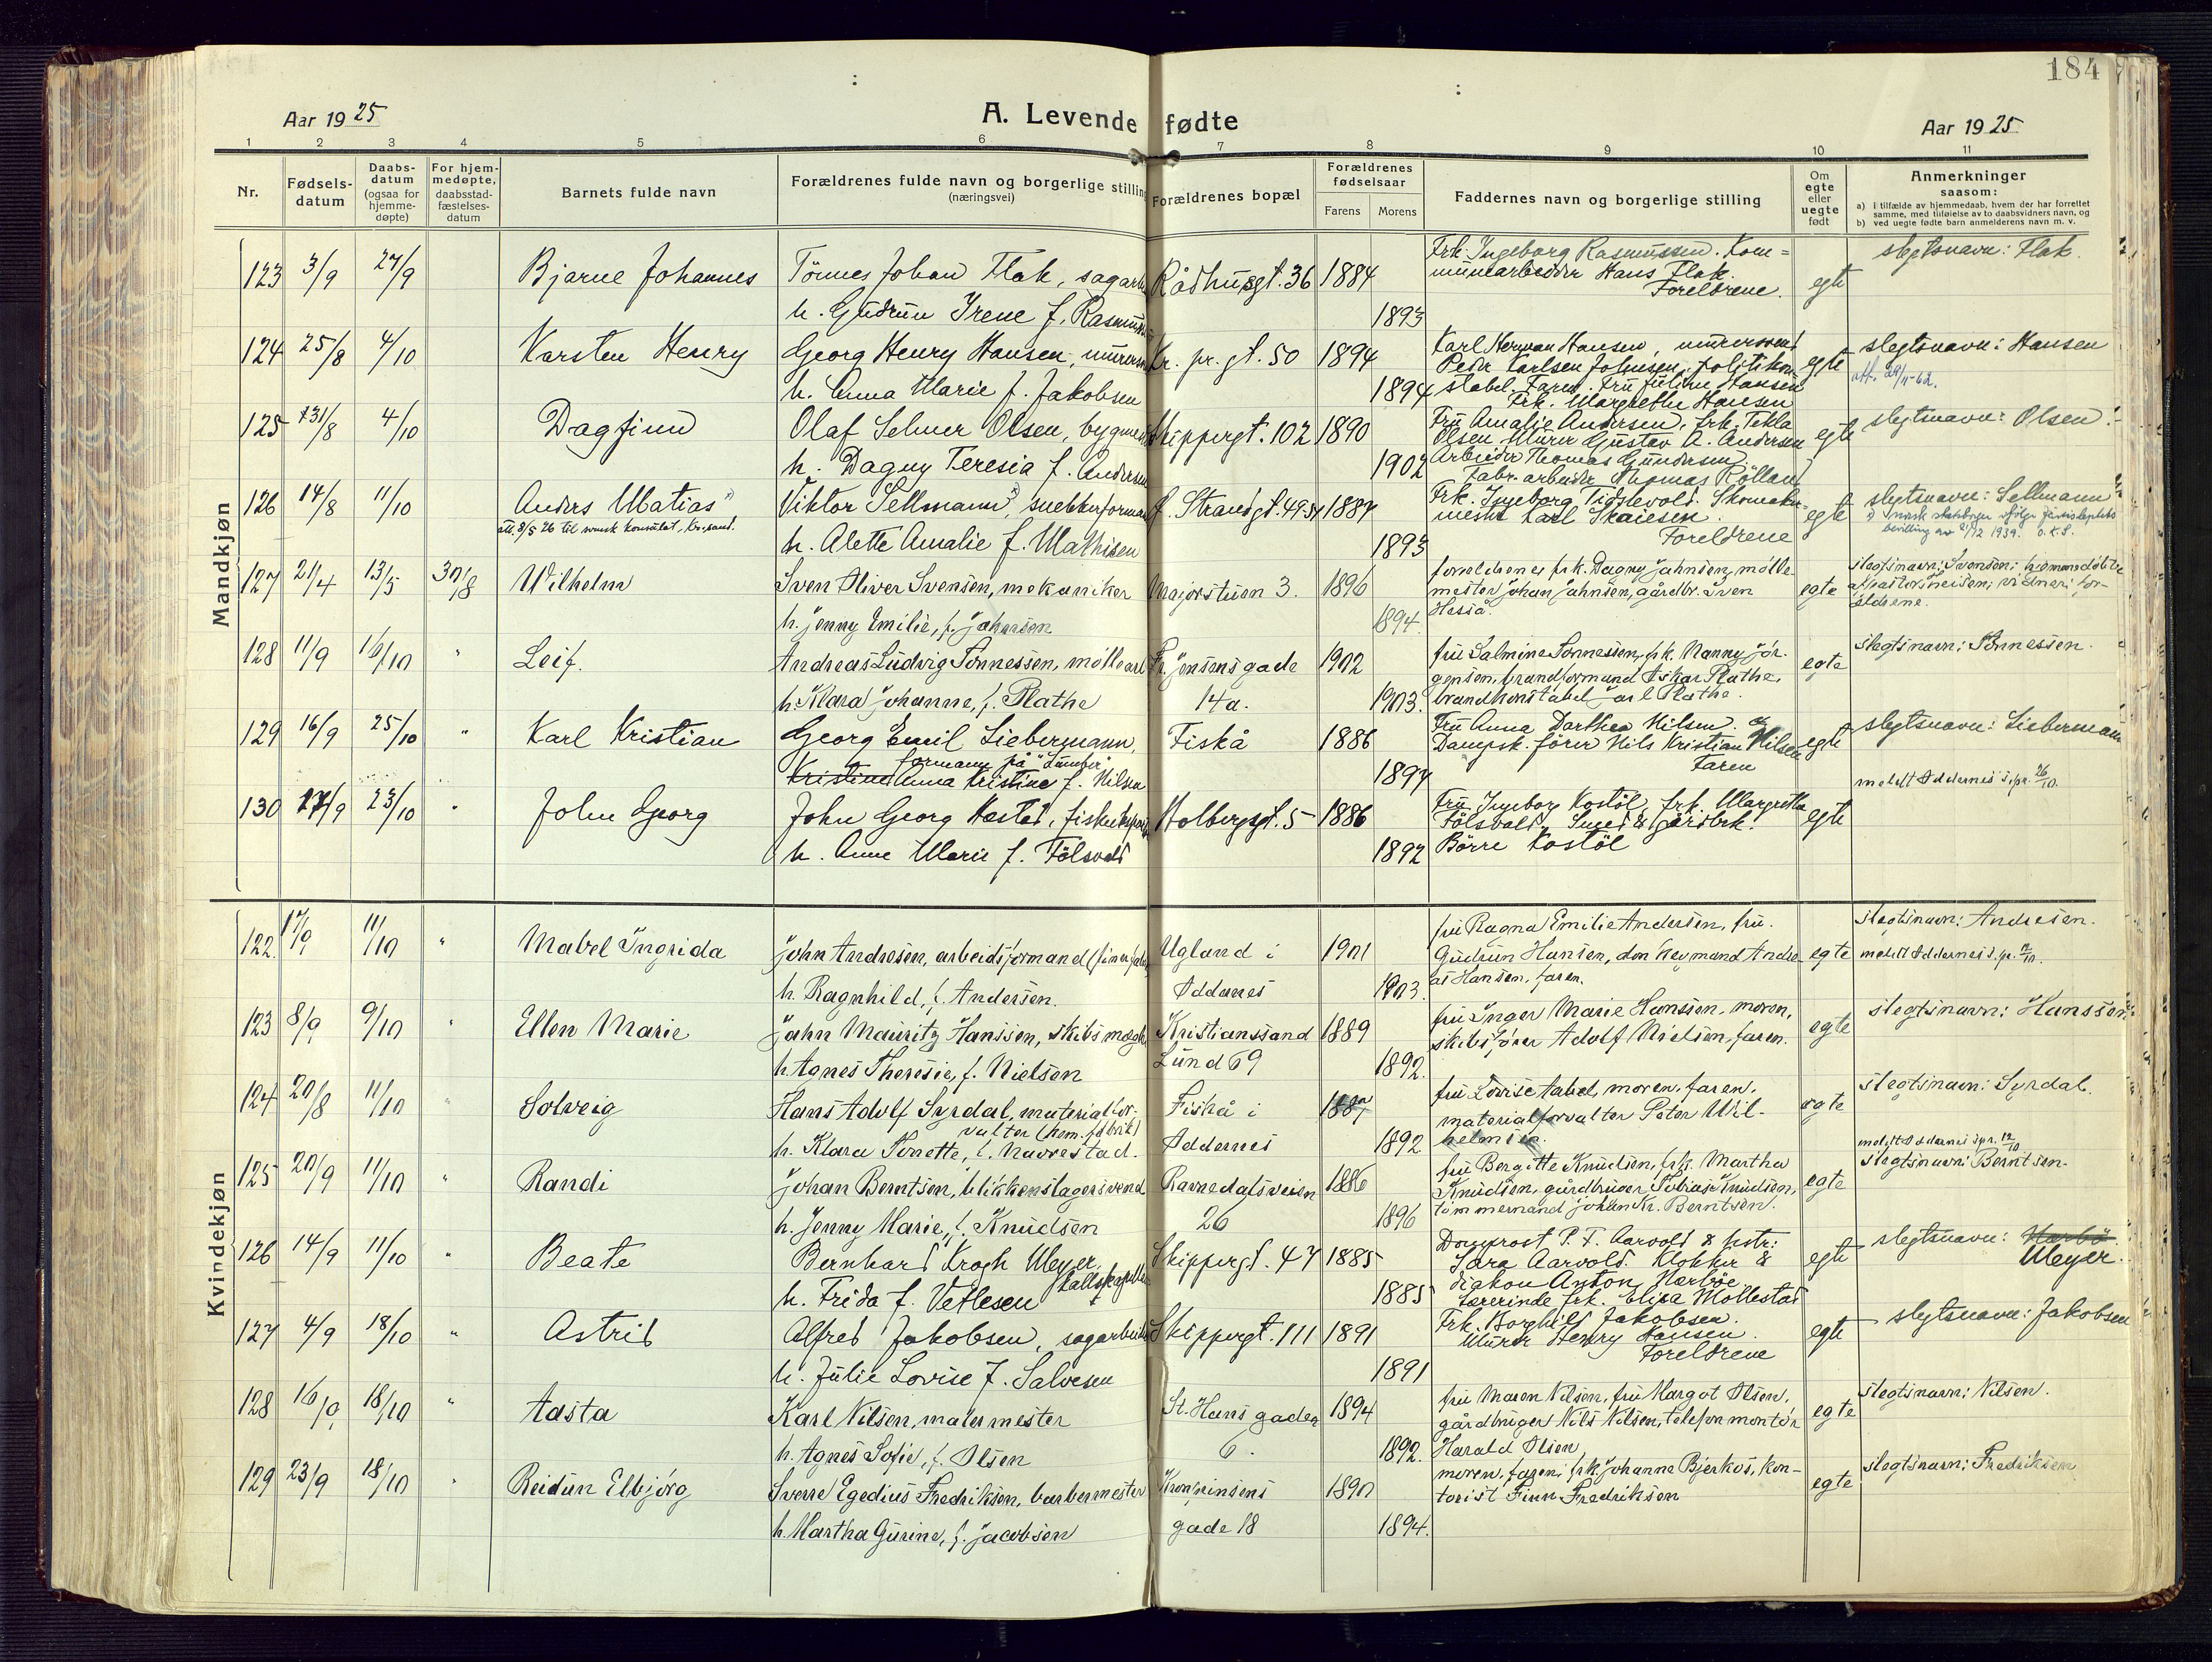 184
Aar 1925
A. Levende fødte
Aar 1925
1 2 3 4 5 6 7 8 9 10 11
Nr.
Fødsels-
datum
Daabs-
datum
(ogsaa for
hjemme-
døpte)
For hjem-
medøpte,
daabsstad-
fæstelses-
datum
Barnets fulde navn
Forældrenes fulde navn og borgerlige stilling
(næringsvei)
Forældrenes bopæl
Forældrenes
fødselsaar
Farens
Morens
Faddernes navn og borgerlige stilling
Om
egte
eller
uegte
født
Anmerkninger
saasom:
a) i tilfælde av hjemmedaab, hvem der har forrettet
samme, med tilføielse av to daabsvidners navn, og
b) ved uegte fødte barn anmelderens navn m. v.
Mandkjøn
123 3/9 27/9 Bjarne Johannes Tönnes Johan Flak, sagarb Rådhusgt. 36 1884 egte slegtsnavn: Flak.
h. Gudrun Irene f. Rasmussen 1893
Frk. Ingeborg Rasmussen. Kom=
munearbeider Hans Flak.
Foreldrene.
124 25/8 4/10 Karsten Henry Georg Henry Hansen, murersv Kr. pr. gt. 50 1894 egte slegtsnavn: Hansen
h. Anna Marie f. Jakobsen 1894
Karl Herman Hansen, murersvend
Peder Karlsen Johnsen, politikon
stabel. Faren. Fru Juline Hansen
Frk. Margrethe Hansen
125 31/8 4/10 Dagfinn Olaf Selmer Olsen, bygmes Skippergt. 102 1890 egte slegtsnavn: Olsen
h. Dagny Teresia f. Andersen 1902
Fru Amalie Andersen, frk. Tekla
Olsen, Murer Gustav A. Andersen
Arbeider Thomas Gundersen
Fabr. arbeider Thomas Röllan
126 14/8 11/10 Anders Matias Viktor Sellmann, snekkerforman f. Strandgt. 49 1887 egte slegtsnavn: Sellmann
att. 8/5 26 til svensk konsulat, Kr.sand.
norsk statsborger ifølge Justisdeptets
bevilling av 21/12 1939. O.K.S.
h. Alette Amalie f. Mathisen 1893
Frk. Ingeborg Tidslevold. Skomaker
mester Karl Skaiesen.
Foreldrene
127 21/4 13/5 30/8 Wilhelm Sven Oliver Svensen, mekaniker Majorstuen 3. 1896 egte slegtsnavn: Svensen; hjemmedøbt
h. Jenny Emilie, f. Jahnsen 1894.
forældrenes frk. Dagny Jahnsen, mølle-
mester Johan Jahnsen, gårdbr. Sven
128 11/9 16/10 " Leif. Andreas Ludvig Tønnessen, møllearb Fr. Jensens gade 1902 egte slegtsnavn: Tønnessen.
h. Klara Johanne, f. Plathe 14a. 1903.
fru Salmine Tønnessen, frk. Nanny Jør-
gensen, brandformand Oskar Plathe,
brandkonstabel Jarl Plathe.
129 16/9 25/10 " Karl Kristian Georg Emil Liebermann, Fiskå 1886 egte slegtsnavn: Liebermann
formann på "Lumber"
Kristine Anna Kristine f. Nilsen 1897
Fru Anna Dorthea Nilsen og
Dampsk. förer Nils Kristian Nilsen
Faren
meldt Oddernes s.pr. 26/10.
130 17/9 23/10 " John Georg John Georg Kostöl, fisker Holbergsgt. 5 1886 egte
h. Anne Marie f. Fölsvold 1892
Fru Ingeborg Kostöl, frk. Margrethe
Fölsvold. Smed & gårdbrk.
Börre Kostöl
Kvindekjøn
122. 17/9 11/10 " Mabel Ingrida John Andresen, arbeidsformand Ugland i 1901 egte slegtsnavn: Andresen.
h. Ragnhild, f. Andersen. Oddernes 1903.
fru Ragna Emilie Andersen, fru.
Gudrun Hansen, donkeymand Andre-
as Hansen, faren.
meldt Oddernes s.pr. 12/10.
123 8/9 9/10 " Ellen Marie John Mauritz Hanssen, skibsmægle Kristianssand 1889 egte slegtsnavn: Hanssen
h. Agnes Theresie, f. Nielsen Lund 69 1892.
fru Inger Marie Hanssen, moren,
skibsfører Adolf Nielsen, faren.
124 20/8 11/10 " Solveig Hans Adolf Syrdal, materialfor- Fiskå i egte slegtsnavn: Syrdal.
valter (kem. fabrik)
h. Klara Tonette, f. Navrestad. Oddernes 1892
fru Lovise Aabel, moren, faren,
materialforvalter Peter Wil-
helmsen.
meldt Oddernes s.pr. 12/10
125 20/9 11/10 " Randi Johan Berntsen, blikkenslagersvend Ravnedalsveien 1886 egte slegtsnavn: Berntsen.
h. Jenny Marie, f. Knudsen 26 1896
fru Bergitte Knudsen, frk. Martha
Knudsen, gårdbruger Tobias Knudsen,
tømmermand Johan Kr. Berntsen.
126 14/9 11/10 " Beate Bernhard Krogh Meyer, Skippergt. 47 1885 egte slegtsnavn: Hærbö
kallskapellan Meyer.
h. Frida f. Vetlesen 1885
Domprost P. F. Aarvold & hstr:
Sara Aarvold. Klokker &
diakon Anton Hærböe
Lærerinde frk. Elisa Mollestad
127 4/9 18/10 " Astrid Alfred Jakobsen, sagarbeider Skippergt. 111 1891 egte slegtsnavn: Jakobsen
h. Julie Lovise f. Salvesen 1891
Frk. Borghild Jakobsen.
Murer Henry Hansen.
Foreldrene
128 16/9 18/10 " Aasta Karl Nilsen, malermester St. Hans gade 1894 egte slegtsnavn: Nilsen.
h. Agnes Sofie, f. Olsen 6. 1892.
fru Maren Nilsen, fru Margot Olsen,
gårdbruger Nils Nilsen, telefonmontør
Harald Olsen
129 23/9 18/10 " Reidun Elbjørg Sverre Egedius Fredriksen, barbermester Kronprinsens 1890 egte slegtsnavn: Fredriksen
h. Martha Gurine, f. Jacobsen gade 18 1894.
moren, faren, frk. Johanne Bjerkøs, kon-
torist Finn Fredriksen